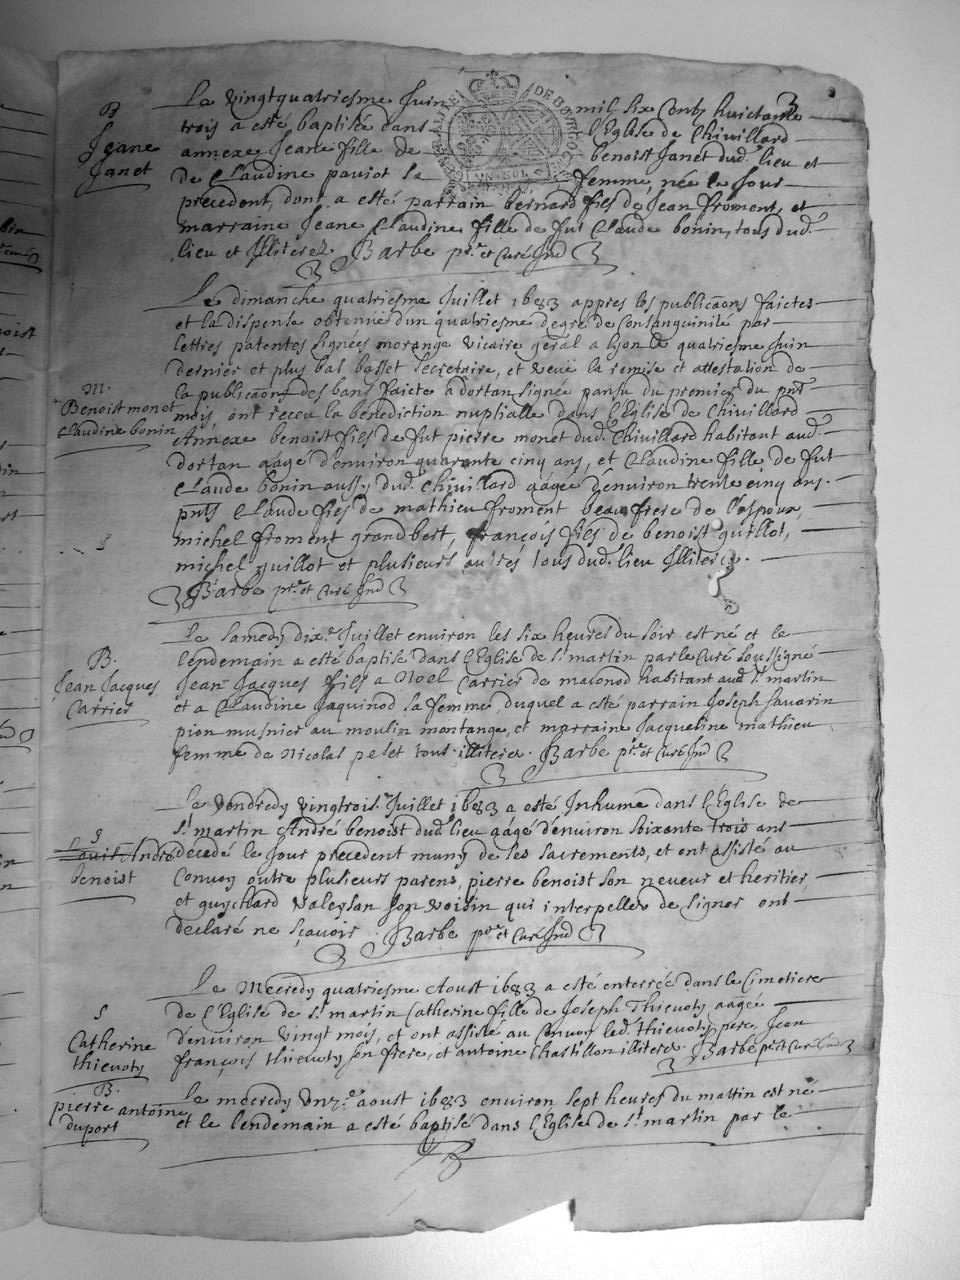 B
Jeane
Janet
Le vingtquatriesme Juin mil six Cents huictante
trois a esté baptisée dans l'Eglise de Chivillard
annexe Jeane fille de benoist Janet dud. lieu et
de Claudine paviot sa femme, née le Jour
precedent, dont a esté parrain bernard fils de Jean froment, et
marraine Jeane Claudine fille de fut Claude bonin, tous dud.
lieu et Illiterez Barbe ptre. et Curé Ind
M.
Benoist monet
Claudine bonin
Le dimanche quatriesme Juillet 1683 appres les publicaons faictes
et la dispense obtenüe d'un quatriesme degre de Consanguinité par
lettres patentes signées morange vicaire geral a lyon le quatriesme Juin
dernier et plus bas basset secretaire, et veue la remise et attestation de
la publicaon des bans faicte a dortan signée pansu du premier du pnt
mois, ont receu la benediction nuptialle dans l'Eglise de Chivillard
Annexe benoist fils de fut pierre monet dud. Chivillard habitant aud.
dortan aagé d'environ quarante cinq ans, et Claudine fille de fut
Claude bonin aussy dud. Chivillard aagée d'environ trente cinq ans.
pnts Claude fils de mathieu froment beaufrere de l'espoux,
michel froment grandbert, françois fils de benoist guillot,
michel guillot et plusieurs autres tous dud. lieu Illiterez.
Barbe ptre. et Curé Ind
B.
Jean Jacques
Carrier
Le samedy dixe. Juillet environ les six heures du soir est né et le
lendemain a esté baptisé dans l'Eglise de st martin par le Curé soussigné
Jean Jacques fils a Noel Carrier de maconod habitant aud. st. martin
et a Claudine Jaquinod sa femme, duquel a esté parrain Joseph favarin
pion musnier au moulin montange, et marraine Jacqueline mathieu
femme de Nicolas pelet tous illiterez. Barbe ptre. et Curé Ind
S
Louis. André
benoist
Le vendredy vingtrois.e Juillet 1683 a esté Inhumé dans l'Eglise de
st. martin André benoist dud. lieu aagé d'environ soixante trois ans
decedé le Jour precedent muny de ses sacrements, et ont assisté au
Convoy outre plusieurs parens, pierre benoist son neveur et heritier,
et guychard valeysan son voisin qui interpellez de signer ont
declaré ne sçavoir. Barbe ptre. et Curé Ind
S
Catherine
thievoty
Le Mecredy quatriesme Aoust 1683 a esté enterrée dans le Cimetiere
de l'Eglise de st. martin Catherine fille de Joseph Thievoty aagée
d'environ vingt mois, et ont assisté au Convoy led. thievoty pere, Jean
françois thievoty son frere, et antoine Chastillon illiterez. Barbe ptre. et Curé Ind
B.
pierre antoine
duport
Le mecredy unze. aoust 1683 environ sept heures du mattin est né
et le lendemain a esté baptisé dans l'Eglise de st. martin par le